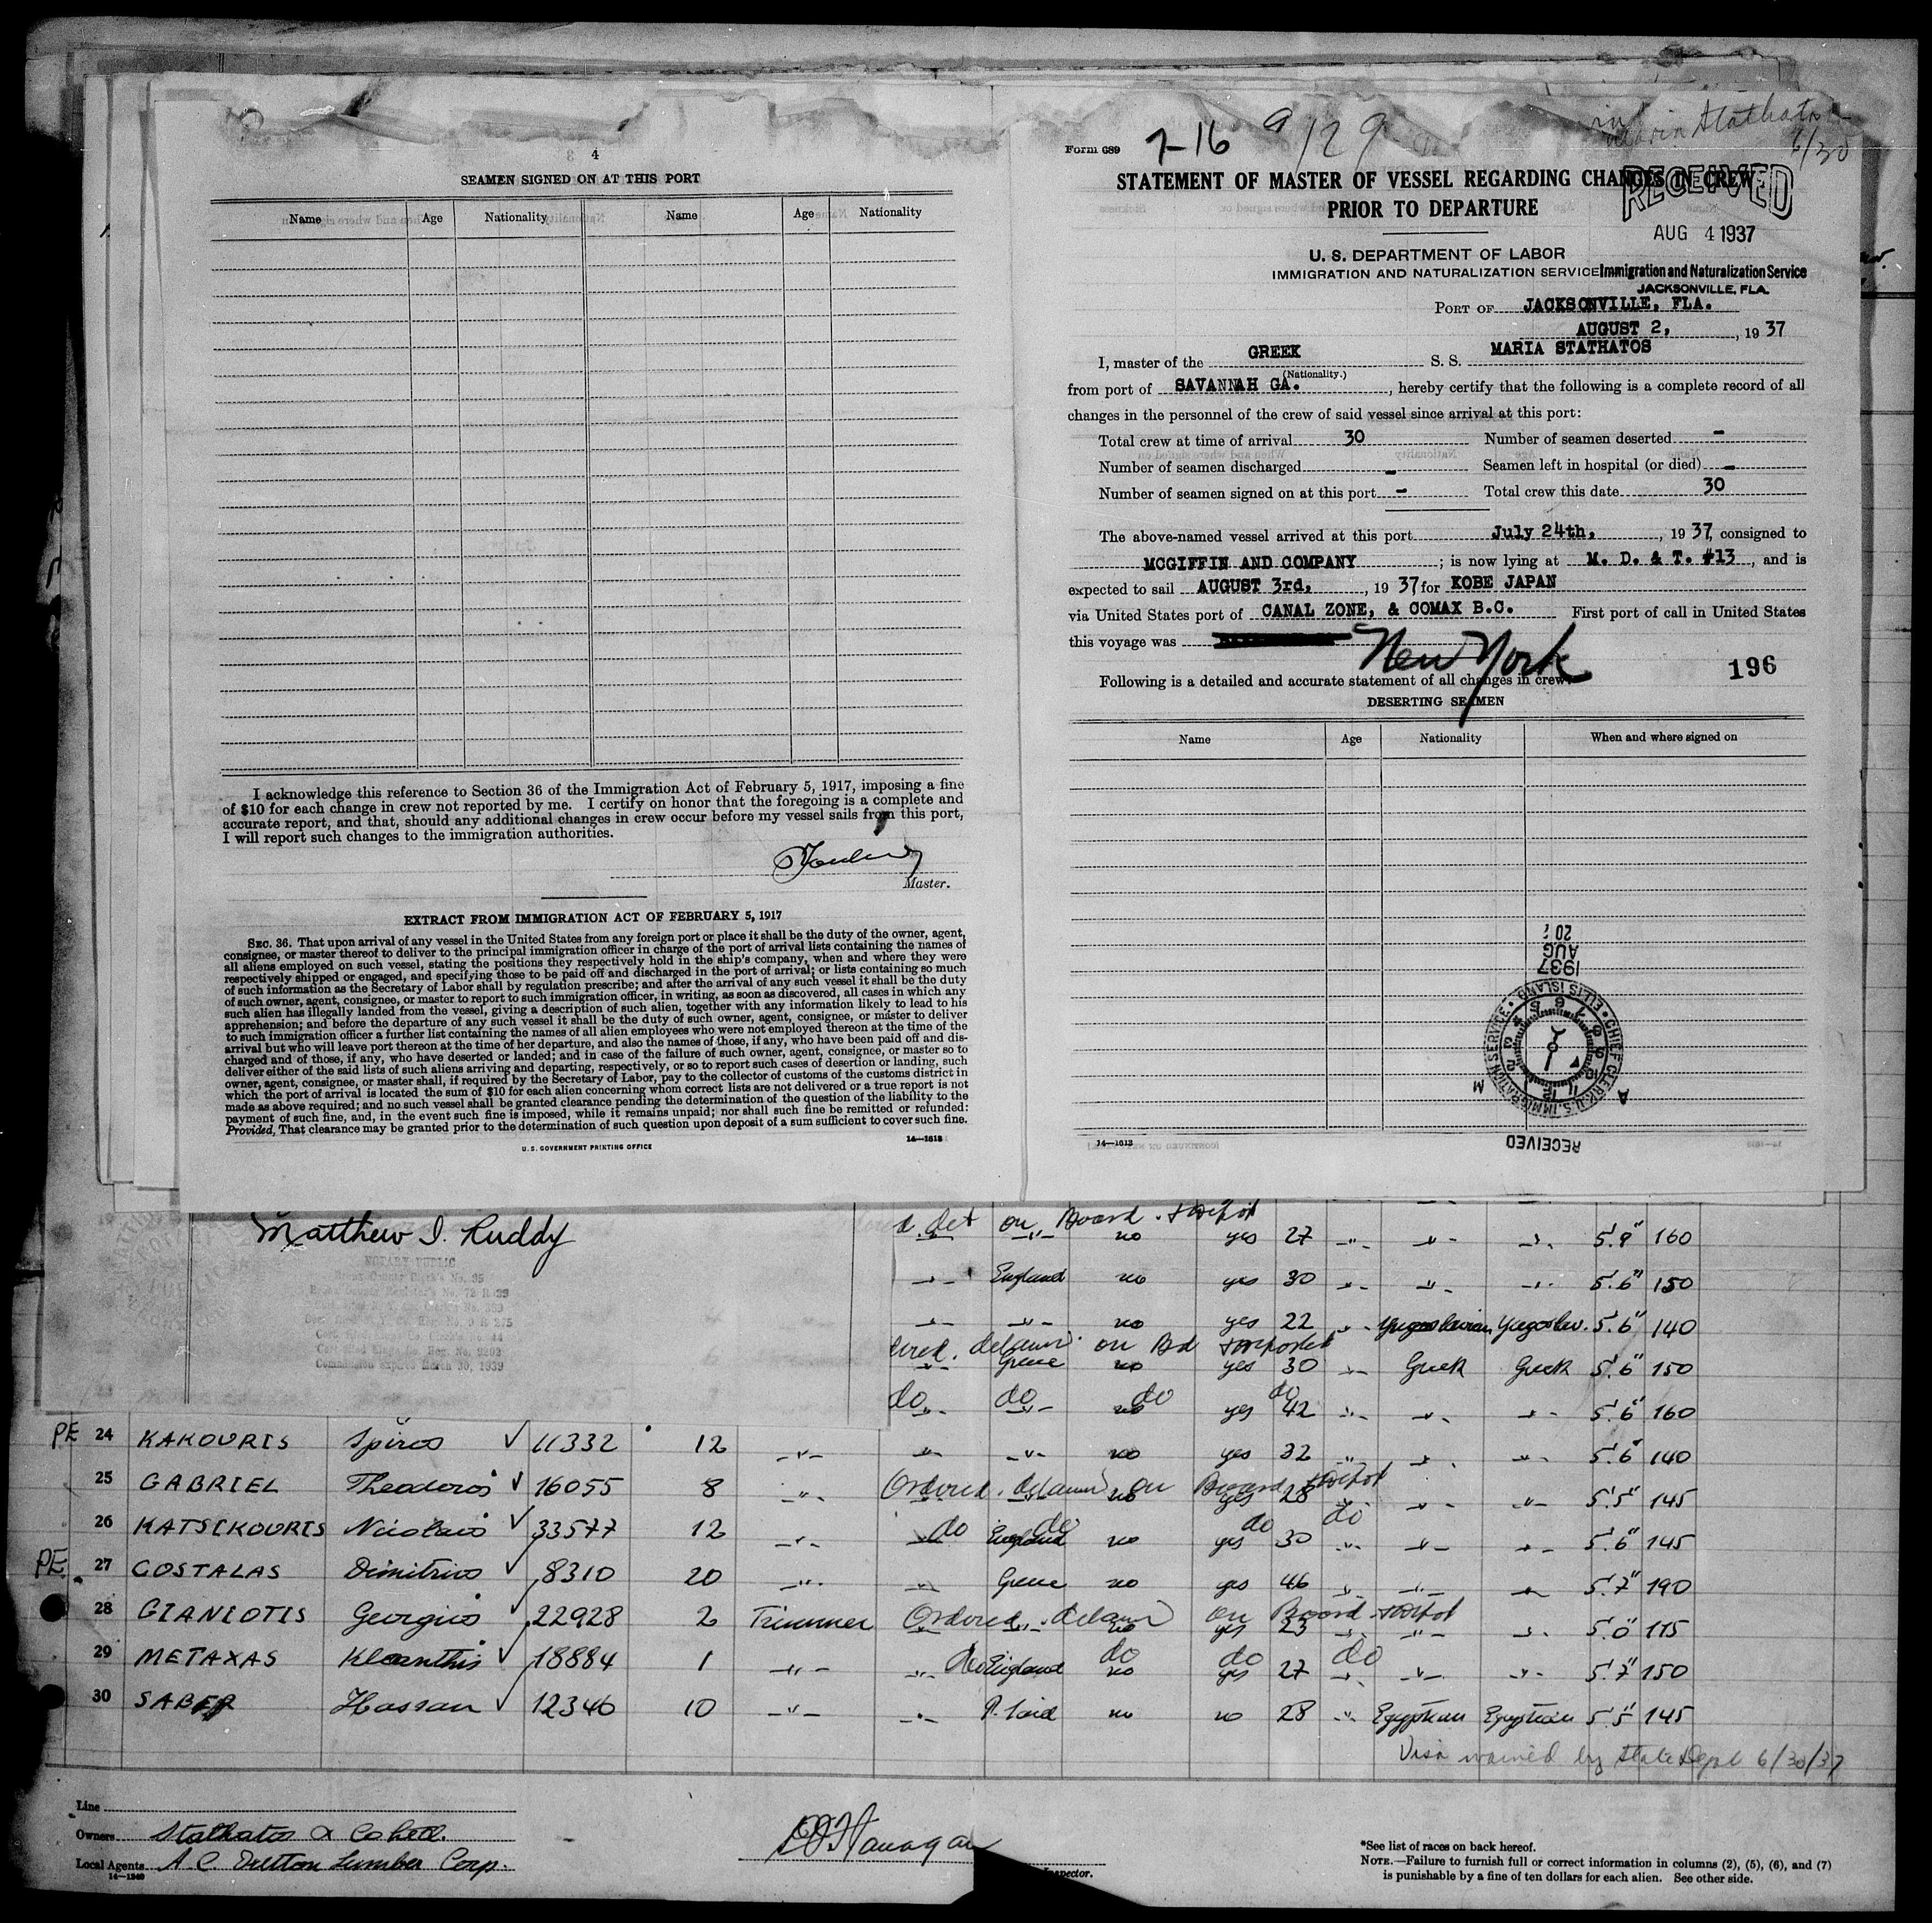 4
SEAMEN SIGNED ON AT THIS PORT
Name Age Nationality Name Age Nationality
I acknowledge this reference to Section 36 of the Immigration Act of February 5, 1917, imposing a fine
of $10 for each change in crew not reported by me. I certify on honor that the foregoing is a complete and
accurate report, and that, should any additional changes in crew occur before my vessel sails from this port,
I will report such changes to the immigration authorities.
Master.
EXTRACT FROM IMMIGRATION ACT OF FEBRUARY 5, 1917
SEC. 36. That upon arrival of any vessel in the United States from any foreign port or place it shall be the duty of the owner, agent,
consignee, or master thereof to deliver to the principal immigration officer in charge of the port of arrival lists containing the names of
all aliens employed on such vessel, stating the positions they respectively hold in the ship's company, when and where they were
respectively shipped or engaged, and specifying those to be paid off and discharged in the port of arrival; or lists containing so much
of such information as the Secretary of Labor shall by regulation prescribe; and after the arrival of any such vessel it shall be the duty
of such owner, agent, consignee, or master to report to such immigration officer, in writing, as soon as discovered, all cases in which any
such alien has illegally landed from the vessel, giving a description of such alien, together with any information likely to lead to his
apprehension; and before the departure of any such vessel it shall be the duty of such owner, agent, consignee, or master to deliver
to such immigration officer a further list containing the names of all alien employees who were not employed thereon at the time of the
arrival but who will leave port thereon at the time of her departure, and also the names of those, if any, who have been paid off and dis-
charged and of those, if any, who have deserted or landed; and in case of the failure of such owner, agent, consignee, or master so to
deliver either of the said lists of such aliens arriving and departing, respectively, or so to report such cases of desertion or landing, such
owner, agent, consignee, or master shall, if required by the Secretary of Labor, pay to the collector of customs of the customs district in
which the port of arrival is located the sum of $10 for each alien concerning whom correct lists are not delivered or a true report is not
made as above required; and no such vessel shall be granted clearance pending the determination of the question of the liability to the
payment of such fine, and, in the event such fine is imposed, while it remains unpaid; nor shall such fine be remitted or refunded:
Provided, That clearance may be granted prior to the determination of such question upon deposit of a sum sufficient to cover such fine.
U. S. GOVERNMENT PRINTING OFFICE 14—1613
Form 689 7-16 9/29
Maria Stathatos
6/30
STATEMENT OF MASTER OF VESSEL REGARDING CHANGES IN CREW
PRIOR TO DEPARTURE
RECEIVED
AUG 4 1937
U. S. DEPARTMENT OF LABOR
IMMIGRATION AND NATURALIZATION SERVICE Immigration and Naturalization Service
JACKSONVILLE, FLA.
PORT OF JACKSONVILLE, FLA.
AUGUST 2, , 19 37
I, master of the GREEK S. S. MARIA STATHATOS
(Nationality.)
from port of SAVANNAH GA. , hereby certify that the following is a complete record of all
changes in the personnel of the crew of said vessel since arrival at this port:
Total crew at time of arrival 30 Number of seamen deserted -
Number of seamen discharged - Seamen left in hospital (or died) -
Number of seamen signed on at this port - Total crew this date 30
The above-named vessel arrived at this port July 24th, , 19 37, consigned to
MCGIFFIN AND COMPANY ; is now lying at M. D. & T. #13 , and is
expected to sail AUGUST 3rd, , 19 37 for KOBE JAPAN
via United States port of CANAL ZONE, & COMAX B.C. First port of call in United States
this voyage was New York
196
Following is a detailed and accurate statement of all changes in crew:
DESERTING SEAMEN
Name Age Nationality When and where signed on
AUG 20
1937
CHIEF CLERK U.S. IMMIGRATION SERVICE • ELLIS ISLAND
A M
RECEIVED
14—1613
Matthew I. Ruddy
NOTARY PUBLIC
Commission expires March 30, 1939
on Board
-"- -"- no yes 27 -"- -"- -"- 5'.9" 160
-"- England no yes 30 -"- -"- -"- 5'.6" 150
-"- -"- no yes 22 -"- Yugoslavian Yugoslav. 5'.6" 140
-"- Greece no yes 30 -"- Greek Greek 5'.6" 150
do do do do
-"- -"- no yes 42 -"- -"- -"- 5'.6" 160
PE 24 KAKOURIS Spiros √ 11332 12 -"- -"- -"- no yes 32 -"- -"- -"- 5'.6" 140
Ordered on Board
25 GABRIEL Theodoros √ 16055 8 -"- -"- -"- no yes 28 -"- -"- -"- 5'.5" 145
do do do do
26 KATSIKOURIS Nicolaos √ 33577 12 -"- -"- England no yes 30 -"- -"- -"- 5'.6" 145
PE. 27 COSTALAS Dimitrios √ 8310 20 -"- -"- Greece no yes 46 -"- -"- -"- 5'.7" 190
Ordered on Board
28 GIANIOTIS Georgios √ 22928 2 Trimmer -"- -"- no yes 23 -"- -"- -"- 5'.0" 115
do do do do
29 METAXAS Kleanthis √ 18884 1 -"- -"- England no yes 27 -"- -"- -"- 5'.7" 150
30 SABER Hassan √ 12346 10 -"- -"- P. Said no no 28 -"- Egyptian Egyptian 5'.5" 145
Visa waived by State Dept 6/30/37
Line
Owners Stathatos & Co
Local Agents A. C. Dutton Lumber Corp.
14—1240
Inspector.
*See list of races on back hereof.
NOTE.—Failure to furnish full or correct information in columns (2), (5), (6), and (7)
is punishable by a fine of ten dollars for each alien. See other side.